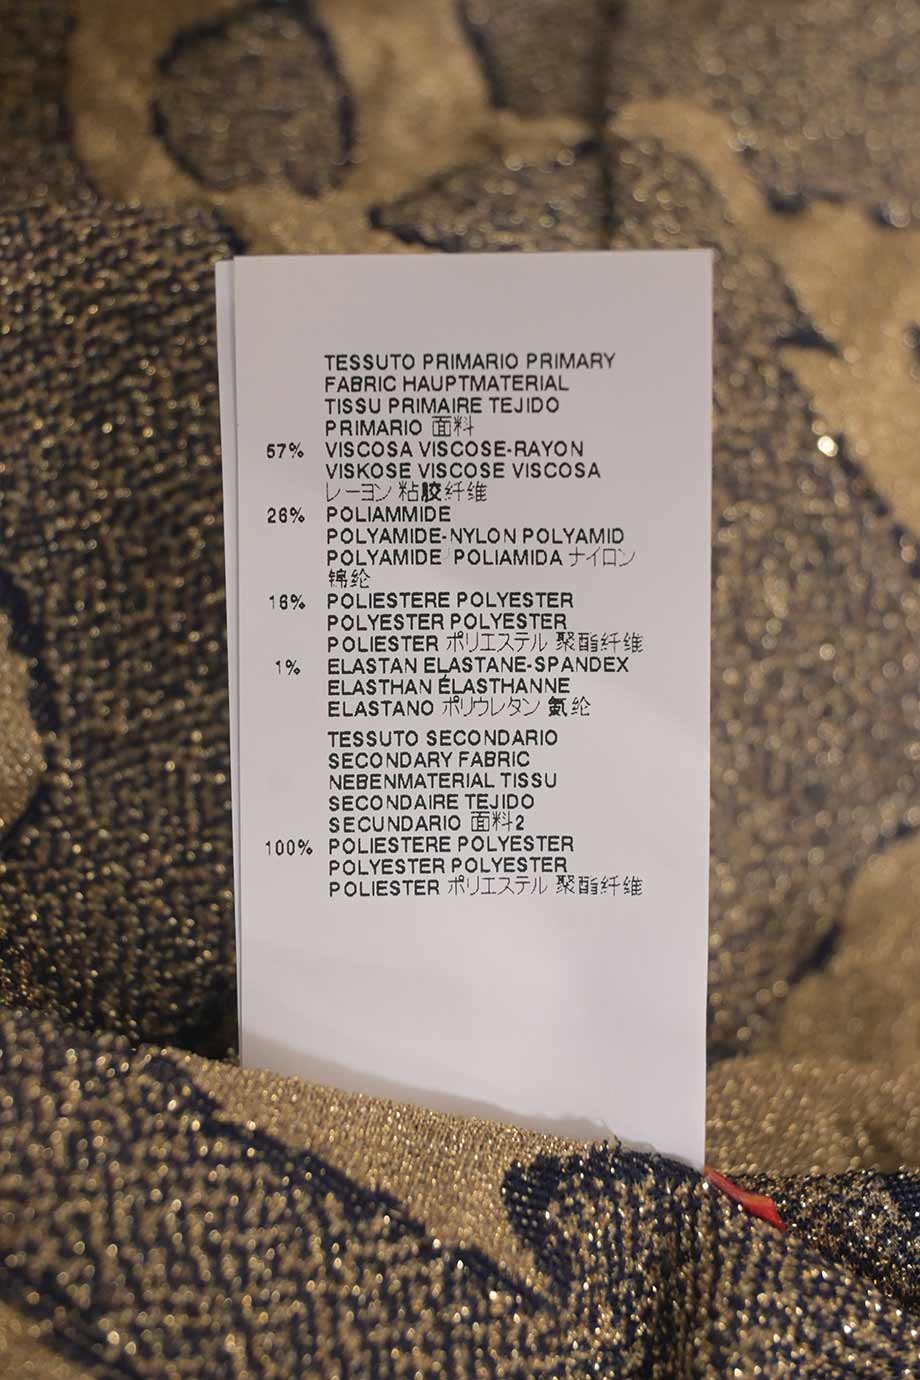 TESSUTO PRIMARIO PRIMARY
FABRIC HAUPTMATERIAL
TISSU PRIMAIRE TEJIDO
PRIMARIO 面料
57% VISCOSA VISCOSE-RAYON
VISKOSE VISCOSE VISCOSA
レーヨン 粘胶纤维
26% POLIAMMIDE
POLYAMIDE-NYLON POLYAMID
POLYAMIDE POLIAMIDA ナイロン
锦纶
16% POLIESTERE POLYESTER
POLYESTER POLYESTER
POLIESTER ポリエステル 聚酯纤维
1% ELASTAN ELASTANE-SPANDEX
ELASTHAN ÉLASTHANNE
ELASTANO ポリウレタン 氨纶
TESSUTO SECONDARIO
SECONDARY FABRIC
NEBENMATERIAL TISSU
SECONDAIRE TEJIDO
SECUNDARIO 面料2
100% POLIESTERE POLYESTER
POLYESTER POLYESTER
POLIESTER ポリエステル 聚酯纤维